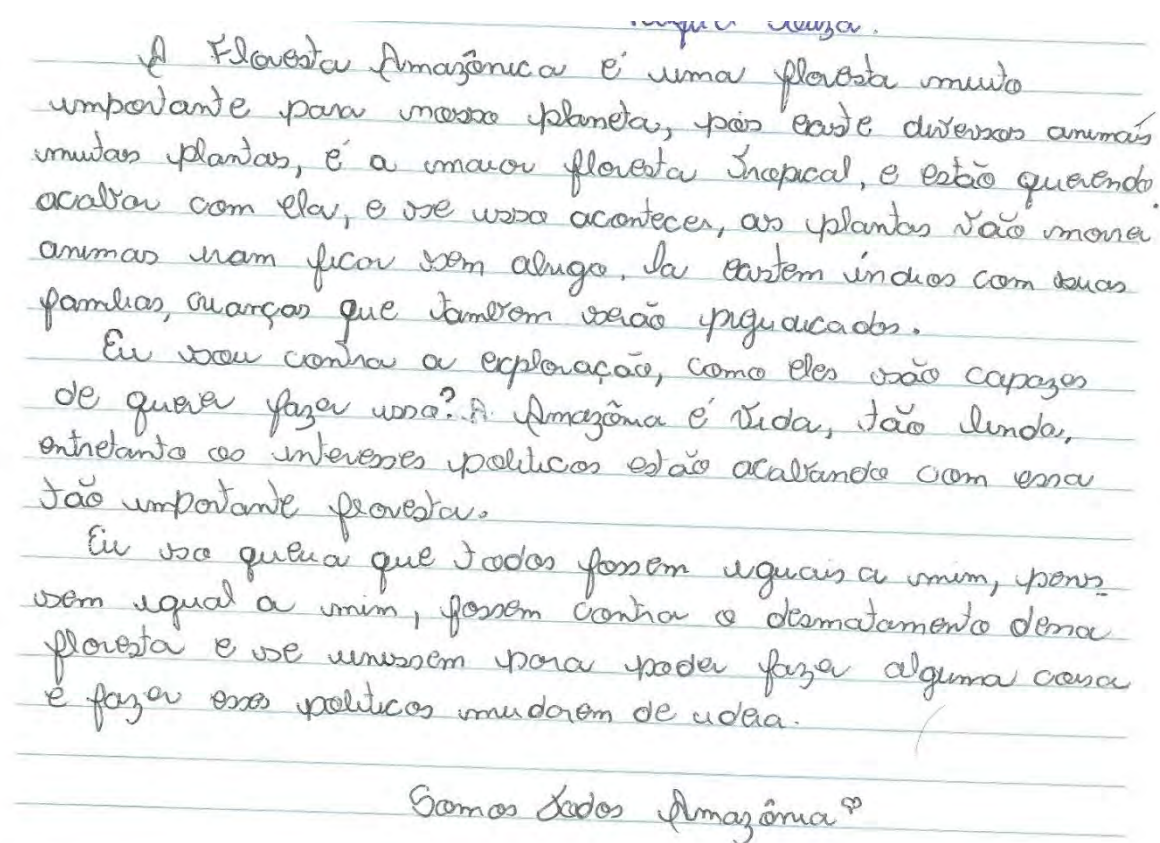 A Floresta Amazônica é uma floresta muito
importante para nosso planeta, pois existe diversos animais
muitas plantas, é a maior floresta Tropical, e estão querendo
acabar com ela, e se isso acontecer, as plantas vão morrer
animas iram ficar sem abrigo. La existem índios com suas
familias, crianças que tambem serão prejudicados.
Eu sou contra a exploração, como eles são capazes
de querer fazer isso? A Amazônia é vida, tão linda,
entretanto os interesses politicos estão acabando com essa
tão importante floresta.
Eu so queria que todos fossem iguais a mim, pens-
sem igual a mim, fossem contra o desmatamento dessa
floresta e se unissem para poder fazer alguma coisa
e fazer esses politicos mudarem de ideia.
Somos Todos Amazônia